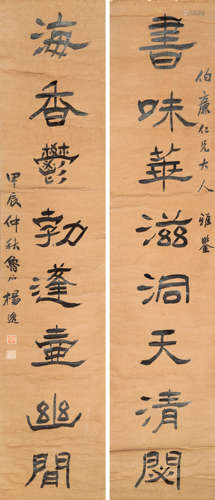 書味華滋洞天清閟
伯廉仁兄大人 雅鑒
海香鬱勃蓬壺幽閒
甲辰仲秋魯石楊逸